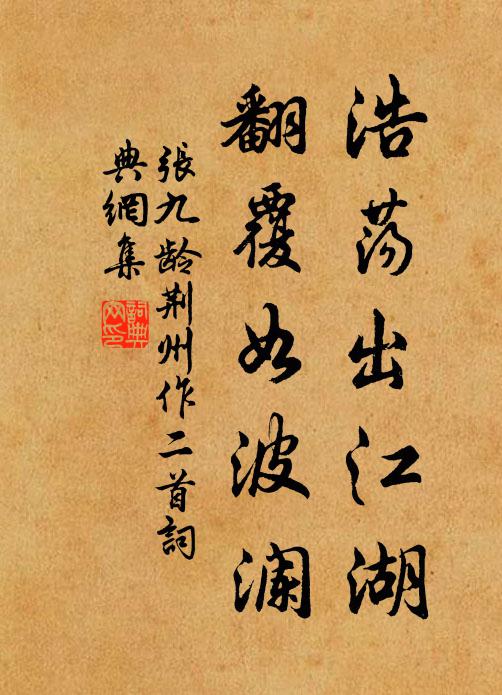 浩荡出江湖
翻覆如波澜
張九龄荆州作二首詞
典網集
詞典
网印